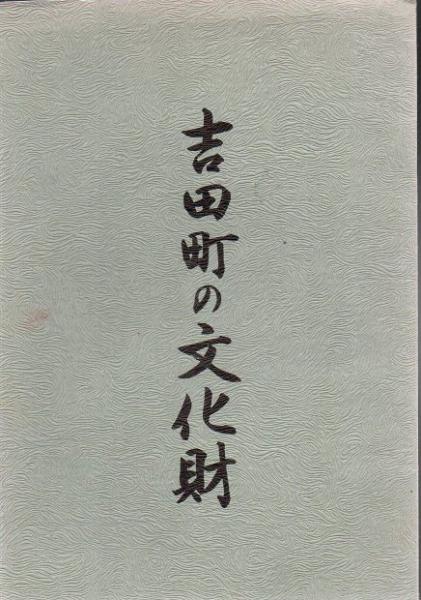 吉田町の文化財